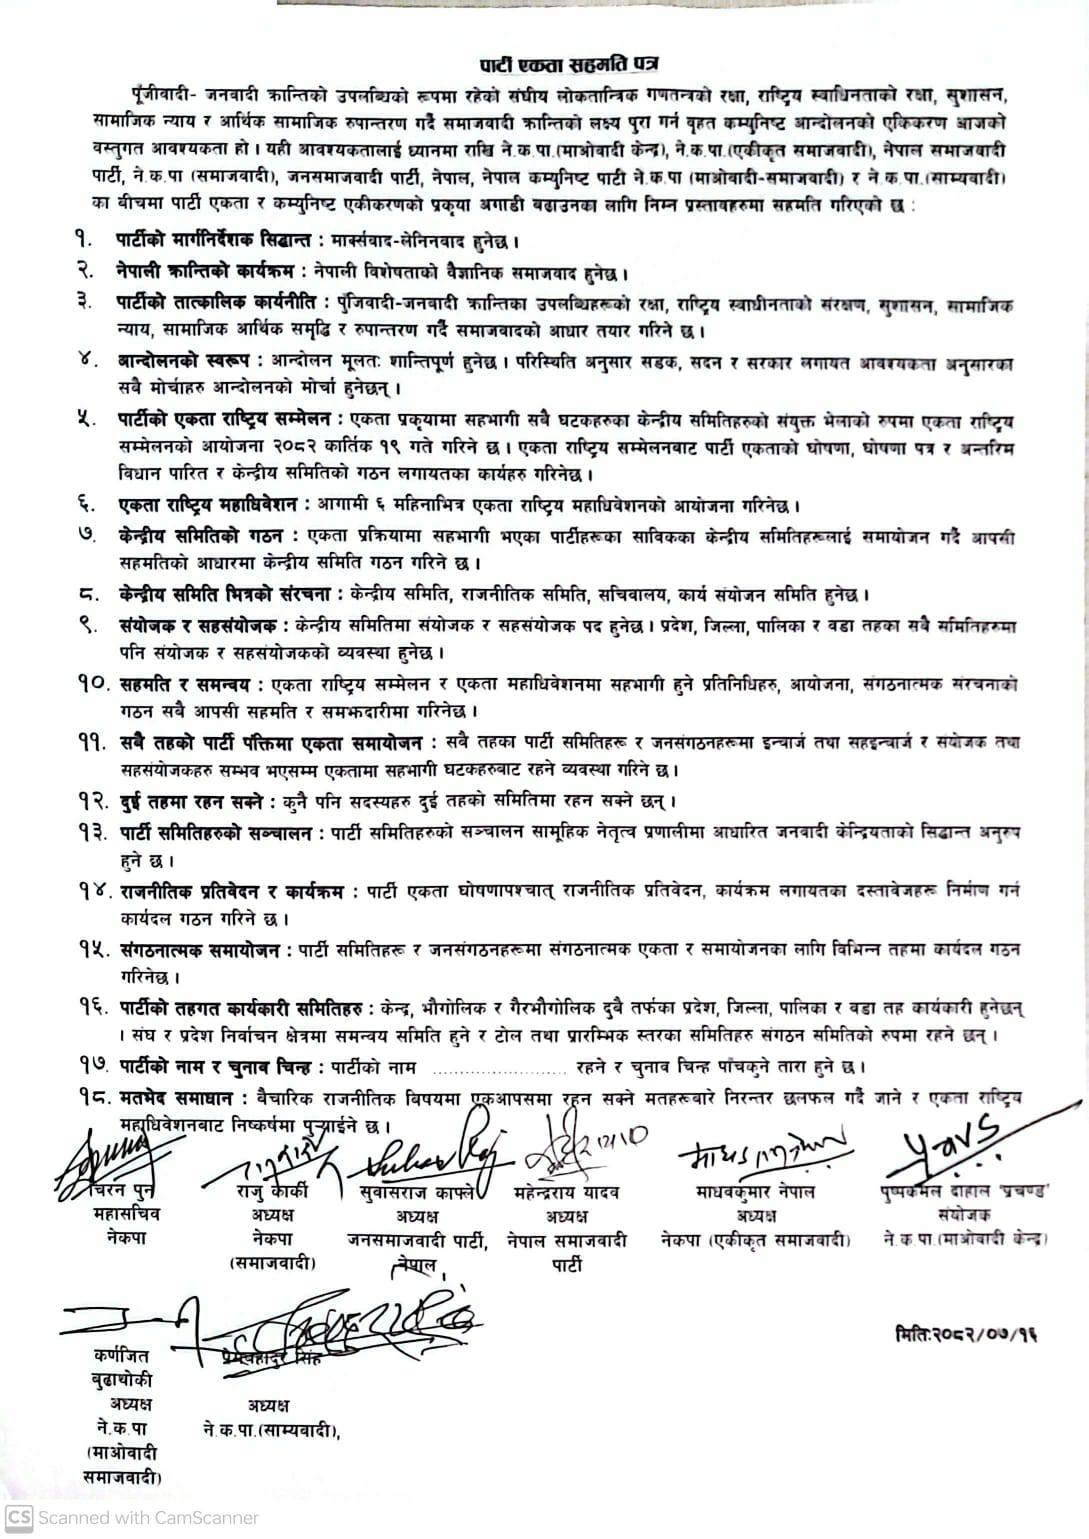 पार्टी एकता सहमति पत्र
पूँजीवादी- जनवादी क्रान्तिको उपलब्धिको रूपमा रहेको संघीय लोकतान्त्रिक गणतन्त्रको रक्षा, राष्ट्रिय स्वाधिनताको रक्षा, सुशासन,
सामाजिक न्याय र आर्थिक सामाजिक रुपान्तरण गर्दै समाजवादी क्रान्तिको लक्ष्य पुरा गर्न वृहत कम्युनिष्ट आन्दोलनको एकिकरण आजको
वस्तुगत आवश्यकता हो । यही आवश्यकतालाई ध्यानमा राखि ने.क.पा.(माओवादी केन्द्र), ने.क.पा.(एकीकृत समाजवादी), नेपाल समाजवादी
पार्टी, ने.क.पा (समाजवादी), जनसमाजवादी पार्टी, नेपाल, नेपाल कम्युनिष्ट पार्टी ने.क.पा (माओवादी-समाजवादी) र ने.क.पा.(साम्यवादी)
का बीचमा पार्टी एकता र कम्युनिष्ट एकीकरणको प्रकृया अगाडी बढाउनका लागि निम्न प्रस्तावहरुमा सहमति गरिएको छ :
१. पार्टीको मार्गनिर्देशक सिद्धान्त : मार्क्सवाद-लेनिनवाद हुनेछ ।
२. नेपाली क्रान्तिको कार्यक्रम : नेपाली विशेषताको वैज्ञानिक समाजवाद हुनेछ ।
३. पार्टीको तात्कालिक कार्यनीति : पुँजिवादी-जनवादी क्रान्तिका उपलब्धिहरूको रक्षा, राष्ट्रिय स्वाधीनताको संरक्षण, सुशासन, सामाजिक
न्याय, सामाजिक आर्थिक समृद्धि र रुपान्तरण गर्दै समाजवादको आधार तयार गरिने छ ।
४. आन्दोलनको स्वरूप : आन्दोलन मूलतः शान्तिपूर्ण हुनेछ । परिस्थिति अनुसार सडक, सदन र सरकार लगायत आवश्यकता अनुसारका
सबै मोर्चाहरु आन्दोलनको मोर्चा हुनेछन् ।
५. पार्टीको एकता राष्ट्रिय सम्मेलन : एकता प्रकृयामा सहभागी सबै घटकहरुका केन्द्रीय समितिहरुको संयुक्त भेलाको रुपमा एकता राष्ट्रिय
सम्मेलनको आयोजना २०८२ कार्तिक १९ गते गरिने छ । एकता राष्ट्रिय सम्मेलनबाट पार्टी एकताको घोषणा, घोषणा पत्र र अन्तरिम
विधान पारित र केन्द्रीय समितिको गठन लगायतका कार्यहरु गरिनेछ ।
६. एकता राष्ट्रिय महाधिवेशन : आगामी ६ महिनाभित्र एकता राष्ट्रिय महाधिवेशनको आयोजना गरिनेछ ।
७. केन्द्रीय समितिको गठन : एकता प्रक्रियामा सहभागी भएका पार्टीहरूका साविकका केन्द्रीय समितिहरूलाई समायोजन गर्दै आपसी
सहमतिको आधारमा केन्द्रीय समिति गठन गरिने छ ।
८. केन्द्रीय समिति भित्रको संरचना : केन्द्रीय समिति, राजनीतिक समिति, सचिवालय, कार्य संयोजन समिति हुनेछ ।
९. संयोजक र सहसंयोजक : केन्द्रीय समितिमा संयोजक र सहसंयोजक पद हुनेछ । प्रदेश, जिल्ला, पालिका र वडा तहका सबै समितिहरुमा
पनि संयोजक र सहसंयोजकको व्यवस्था हुनेछ ।
१०. सहमति र समन्वय : एकता राष्ट्रिय सम्मेलन र एकता महाधिवेशनमा सहभागी हुने प्रतिनिधिहरु, आयोजना, संगठनात्मक संरचनाको
गठन सबै आपसी सहमति र समझदारीमा गरिनेछ ।
११. सबै तहको पार्टी पंक्तिमा एकता समायोजन : सबै तहका पार्टी समितिहरू र जनसंगठनहरूमा इन्चार्ज तथा सहइन्चार्ज र संयोजक तथा
सहसंयोजकहरु सम्भव भएसम्म एकतामा सहभागी घटकहरुबाट रहने व्यवस्था गरिने छ ।
१२. दुई तहमा रहन सक्ने : कुनै पनि सदस्यहरु दुई तहको समितिमा रहन सक्ने छन् ।
१३. पार्टी समितिहरुको सञ्चालन : पार्टी समितिहरुको सञ्चालन सामूहिक नेतृत्व प्रणालीमा आधारित जनवादी केन्द्रियताको सिद्धान्त अनुरुप
हुने छ ।
१४. राजनीतिक प्रतिवेदन र कार्यक्रम : पार्टी एकता घोषणापश्चात् राजनीतिक प्रतिवेदन, कार्यक्रम लगायतका दस्तावेजहरू निर्माण गर्न
कार्यदल गठन गरिने छ ।
१५. संगठनात्मक समायोजन : पार्टी समितिहरू र जनसंगठनहरूमा संगठनात्मक एकता र समायोजनका लागि विभिन्न तहमा कार्यदल गठन
गरिनेछ ।
१६. पार्टीको तहगत कार्यकारी समितिहरु : केन्द्र, भौगोलिक र गैरभौगोलिक दुबै तर्फका प्रदेश, जिल्ला, पालिका र वडा तह कार्यकारी हुनेछन्
। संघ र प्रदेश निर्वाचन क्षेत्रमा समन्वय समिति हुने र टोल तथा प्रारम्भिक स्तरका समितिहरु संगठन समितिको रुपमा रहने छन् ।
१७. पार्टीको नाम र चुनाव चिन्ह : पार्टीको नाम ........................... रहने र चुनाव चिन्ह पाँचकुने तारा हुने छ ।
१८. मतभेद समाधान : वैचारिक राजनीतिक विषयमा एकआपसमा रहन सक्ने मतहरूबारे निरन्तर छलफल गर्दै जाने र एकता राष्ट्रिय
महाधिवेशनबाट निष्कर्षमा पुऱ्याईने छ ।
चिरन पुन राजु कार्की सुवासराज काफ्ले महेन्द्रराय यादव माधवकुमार नेपाल पुष्पकमल दाहाल 'प्रचण्ड'
महासचिव अध्यक्ष अध्यक्ष अध्यक्ष अध्यक्ष संयोजक
नेकपा नेकपा जनसमाजवादी पार्टी, नेपाल समाजवादी नेकपा (एकीकृत समाजवादी) ने.क.पा.(माओवादी केन्द्र)
(समाजवादी) नेपाल, पार्टी
मिति:२०८२/०७/१६
कर्णजित प्रेमबहादुर सिंह
बुढाथोकी
अध्यक्ष अध्यक्ष
ने.क.पा ने.क.पा.(साम्यवादी),
(माओवादी
समाजवादी)
CS Scanned with CamScanner